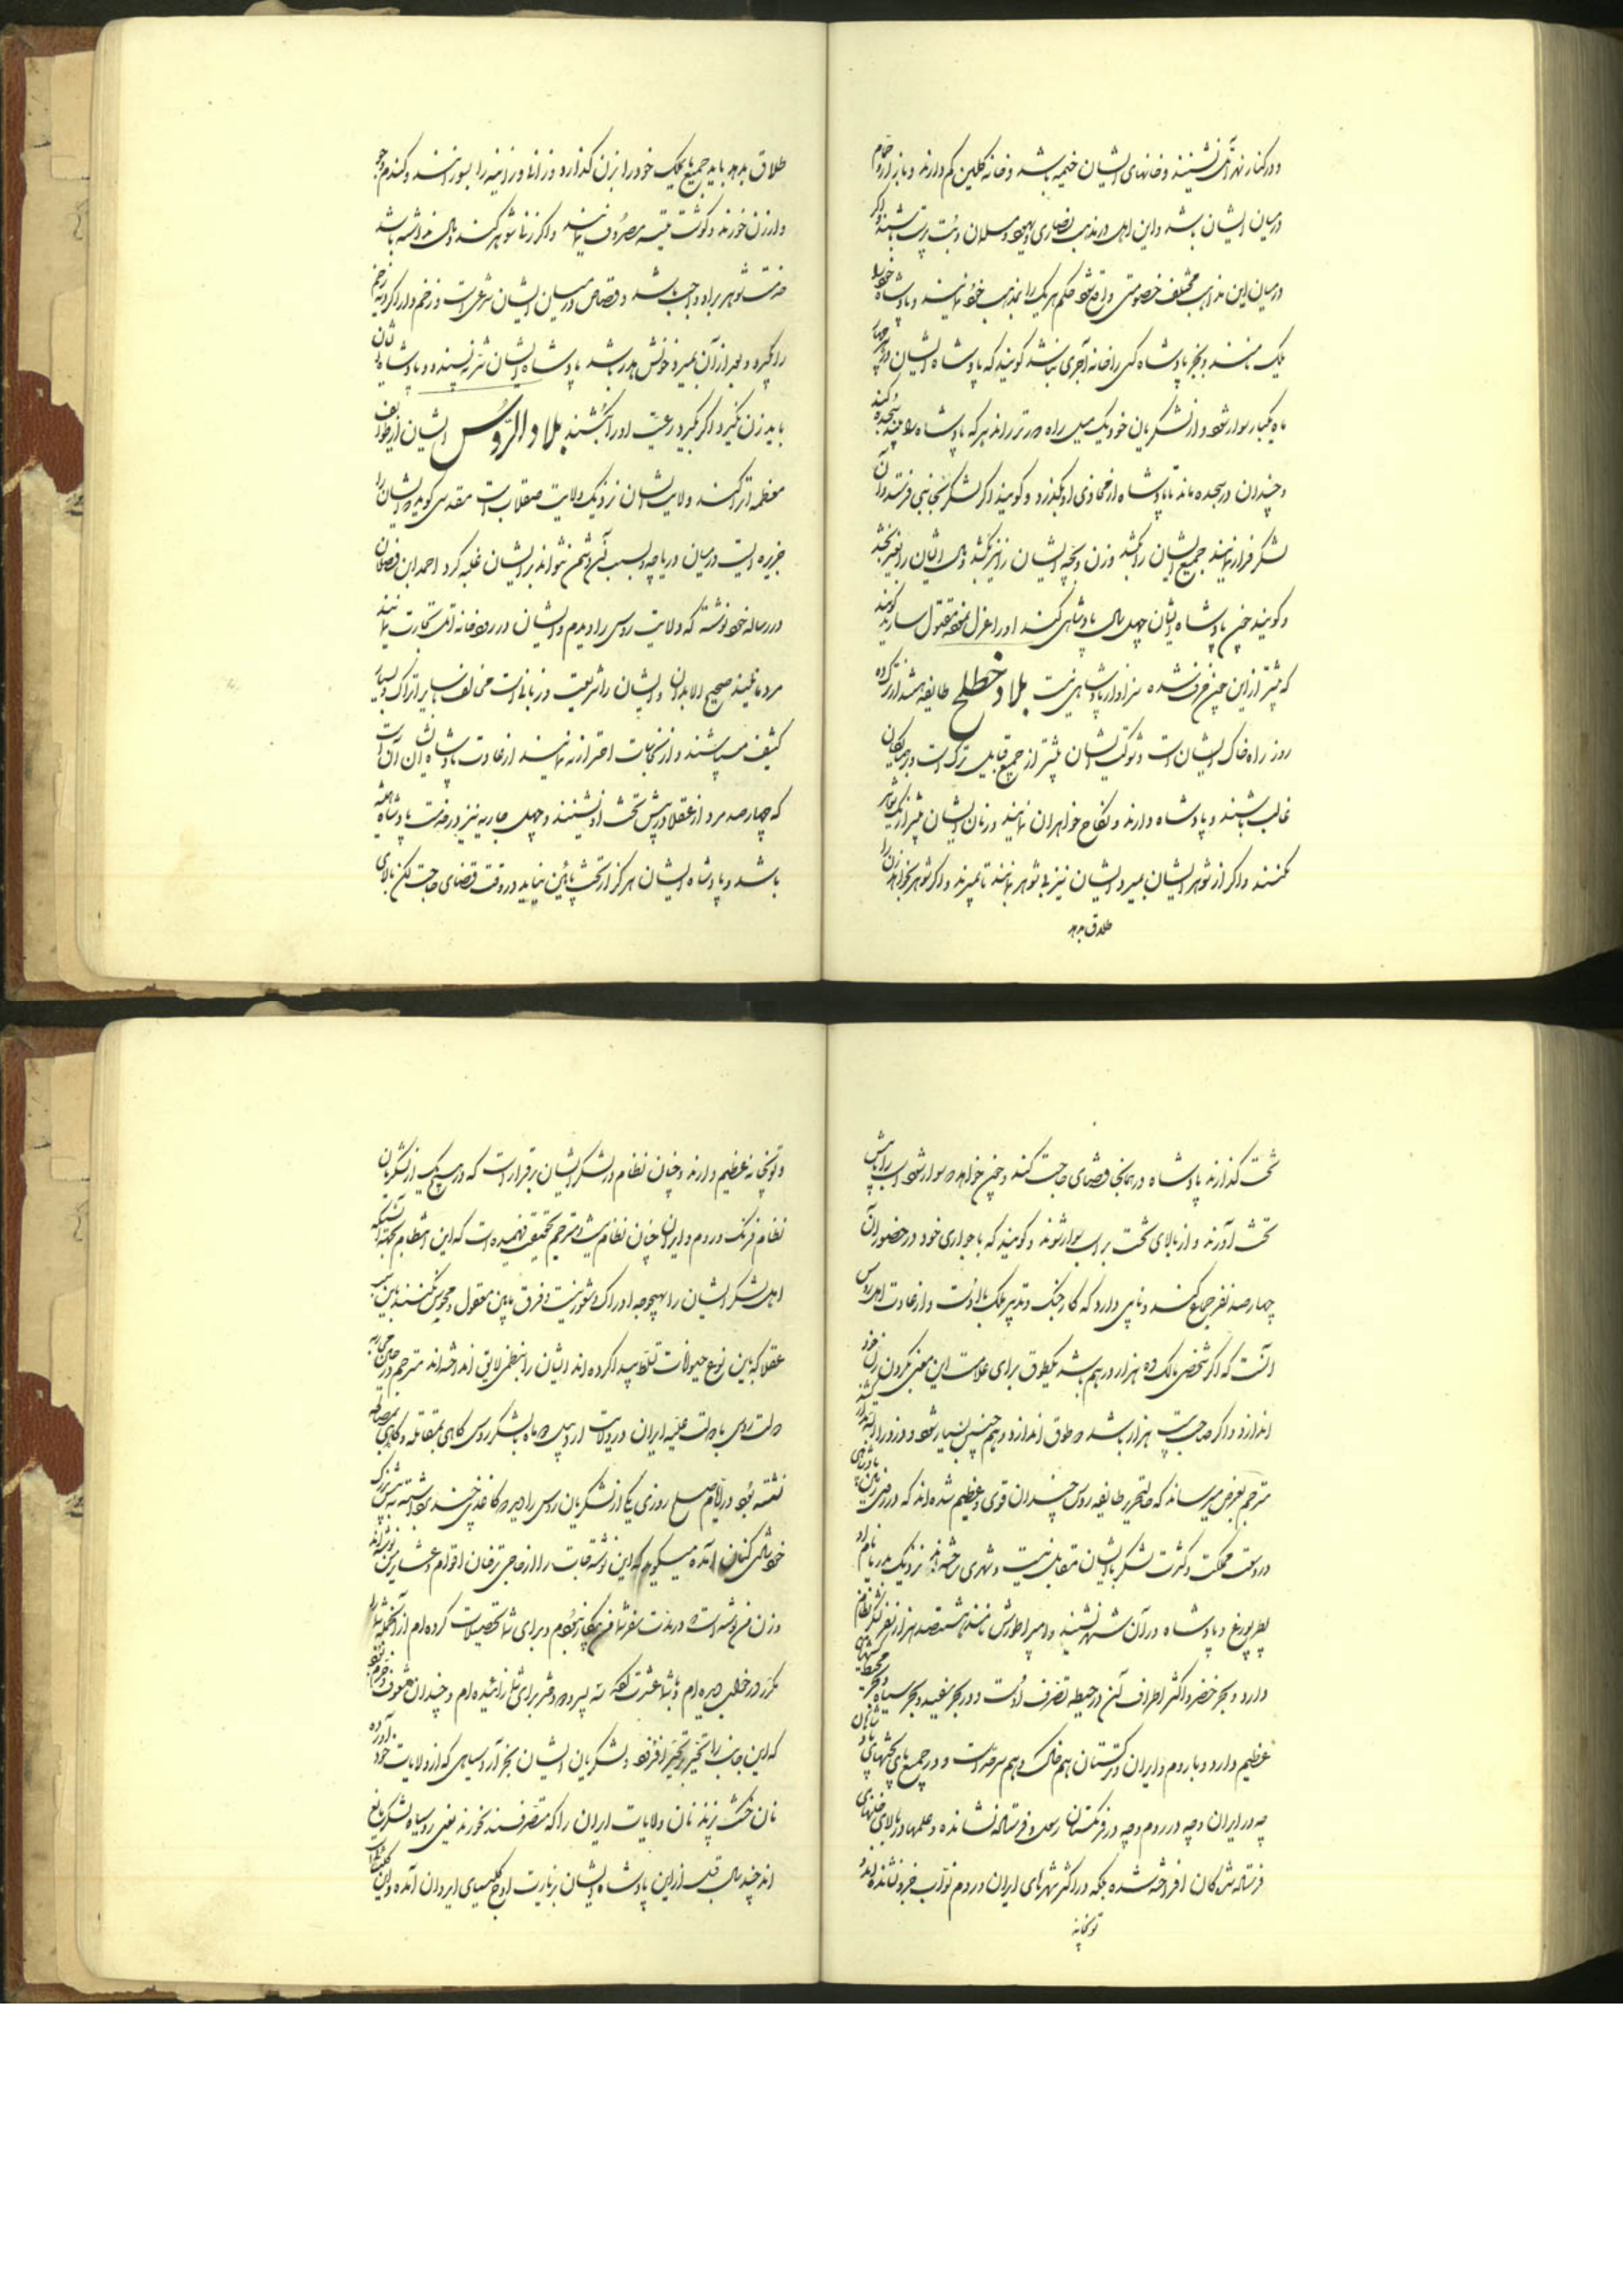 و در کنار نهر آتل نشینند و خانهای ایشان خیمه باشد و خانه گلین کم دارند و بازار و حمام
در میان ایشان باشد و این اهل در مذهب نصاری و یهود و مسلمان و بت پرست باشند و اگر
در میان این مذاهب مختلف خصومتی واقع شود حکم هر یک را بمذهب خود نمایند و پادشاه خود را
یلک نامند و بجز پادشاه کسی را خانه آجری نباشد گویند که پادشاه ایشان در هر چهار
ماه یکبار سوار شود و از لشکریان خود یک میل راه دورتر راند هر که پادشاه را بیند سجده کند
و چندان در سجده ماند تا پادشاه از محاذی او بگذرد و گویند اگر لشکر بجانبی فرستد و آن
لشکر فرار نمایند جمیع ایشان را بکشد و زن و بچه ایشان را نیز بکشد و مال ایشان را بغیر بخشد
و گویند چون پادشاه ایشان چهل سال پادشاهی کند او را عزل نموده مقتول سازند گویند
که پیشتر از این چون خرف شده سزاوار پادشاهی نیست بلاد خطلخ طایفه هستند از ترک ده
روز راه خاک ایشان است و شوکت ایشان بیشتر از جمیع قبایل ترک است و بر همسایگان
غالب باشند و پادشاه دارند و نکاح خواهران نمایند و زنان ایشان بیشتر از یک شوهر
نکنند و اگر از شوهر ایشان بمیرد ایشان نیز بی شوهر مانند تا بمیرند و اگر شوهر بخواهد زن را
طلاق بدهد
طلاق بدهد باید جمیع مایملک خود را بزن گذارد و زانی و زانیه را بسوزانند و گندم و جو
و ارزن خورند و گوشت میته مصروف نمایند و اگر زنها شوهر کنند و مال نداشته باشد
خدمت شوهر براو واجب باشد و قصاص در میان ایشان شرعی است و زخم دار اگر دیه زخم
را بگیرد و بعد از آن بمیرد خونش هدر باشد پادشاه ایشان شر نپسندد و پادشاه ایشان
باید زن نگیرد اگر بگیرد رعیت او را بکشند بلاد الروس ایشان از طوایف
معظمه اتراکند ولایت ایشان نزدیک ولایت صقلاب است مقدسی گوید ایشان را
جزیره ایست در میان دریاچه و بسبب آن دشمن نتواند بر ایشان غلبه کرد احمد ابن فضلان
در رساله خود نوشته که ولایت روس را دیدم و ایشان در رودخانه اتل تجارت نمایند
مردمانیند صحیح الابدان و ایشان را شریعت و زبانی است مخالف سایر اتراک و بسیار
کثیف میباشند و از نجاسات احتراز ننمایند از عادت پادشاه ایشان آن است
که چهار صد مرد از عقلا در پیش تخت او نشینند و چهل جاریه نیز در خدمت پادشاه همیشه
باشد و پادشاه ایشان هرگز از تخت پائین نیاید در وقت قضای حاجت لگن بالای
تخت گذارند پادشاه در همانجا قضای حاجت کند و چون خواهد سوار شود اسب را به پیش
تخت آورند و از بالای تخت بر اسب سوار شوند و گویند که با جواری خود در حضور آن
چهار صد نفر جماع کند و نایبی دارد که کار جنگ و تدبیر ملک با اوست و از عادت اهل روس
آنست که اگر شخصی مالک ده هزار درهم باشد یکطوق برای علامت این معنی بگردن زن خود
اندازد و اگر صاحب بیست هزار باشد دو طوق اندازد و هم چنین بسیار شود و دزد را
مترجم بعرض میرساند که حالتحریر طایفه روس چندان قوی و عظیم شده اند که در روی زمین پادشاهی
در وسعت مملکت و کثرت لشکر با ایشان مقابل نیست و شهری ساخته اند نزدیک بدریا بنام
پطر پورغ و پادشاه در آن شهر نشیند و امپراطورش نامند هشتصد هزار نفر لشکر نظام
دارد و بحر خضر و اکثر اطراف آن در حیطه تصرف اوست و در بحر سفید و بحر سیاه و بحر محیط کشتیهای
عظیم دارد و با روم و ایران و ترکستان هم خاک و هم سرحد است و در جمیع پای تختهای پادشاهان
چه در ایران و چه در روم و چه در فرنگستان رسل و فرستاده نشانده و علمها در بالای خانهای
فرستاده شدگان افراخته شده بلکه در اکثر شهرهای ایران و روم نواب خبر و نشانده اند و
توپخانه
و توپخانه عظیم دارند و چنان نظام در لشکر ایشان برقرار است که در هیچ یک از لشکریان
نظام فرنگ و روم و ایران چنان نظام نیست و مترجم تحقیق فهمیده است که این انتظام بجهت آنست که
اهل لشکر ایشان را بهیچوجه ادراک و شعور نیست و فرق مابین معقول و محسوس نکنند باین سبب
عقلا که باین نوع حیوانات تسلط پیدا کرده اند ایشان را بنظمی لایق انداخته اند مترجم در حین محاربه
دولت روس با دولت علیه ایران در ولایت اردبیل دو ماه با لشکر روس گاهی بمقاتله و گاهی بمصالحه
نشسته بود در ایام صلح روزی یکی از لشکریان روس را دید دو کاغذ چند برداشته به پیش بزرگ
خود شادی کنان آمده میگوید که این نوشته جات را از حاجی ترخان اقوام و عشایر من نوشته اند
و زن من نوشته است در مدت سفر شما من بیکار نبودم و برای شما تحصیلات کرده ام از آنجمله شما را
مکرر در خواب دیده ام و با شما عشرت کرده سه پسر و دو دختر برای شما زائیده ام و چندان مشعوف و خرم بود
که این جانب را تحیر بر تحیر افزود و لشکریان ایشان بجز آرد سیاهی که از ولایات خود آورده
نان خشک پزند نان ولایات ایران را که متصرفند نخورند یعنی رؤسا لشکر مانع
اند چند سال قبل از این پادشاه ایشان بزیارت اوچ کلیسای ایروان آمده و این کلیسا